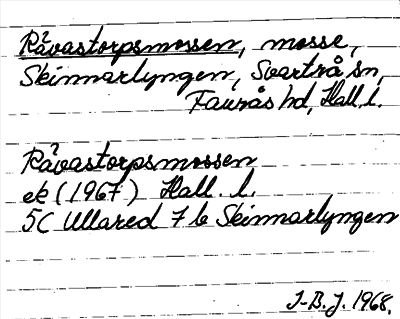 Råvastorpsmossen, mosse,
Skinnarlyngen, Svartrå sn,
Faurås hd, Hall. l.
Råvastorpsmossen
ek (1967) Hall. l.
5C Ullared 7 b Skinnarlyngen
J-B. J. 1968.